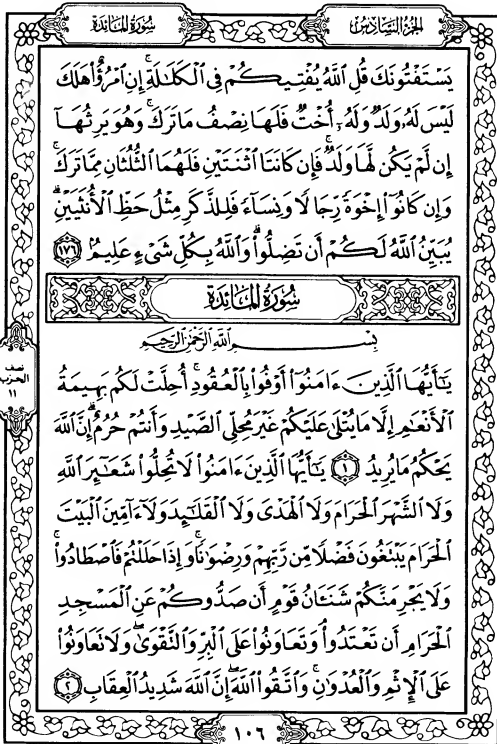 سُورَةُ المَائِدَة
الجُزْءُ السَّادِسُ
يَسْتَفْتُونَكَ قُلِ ٱللَّهُ يُفْتِيكُمْ فِى ٱلْكَلَـٰلَةِ ۚ إِنِ ٱمْرُؤٌا۟ هَلَكَ
لَيْسَ لَهُۥ وَلَدٌ وَلَهُۥٓ أُخْتٌ فَلَهَا نِصْفُ مَا تَرَكَ ۚ وَهُوَ يَرِثُهَآ
إِن لَّمْ يَكُن لَّهَا وَلَدٌ ۚ فَإِن كَانَتَا ٱثْنَتَيْنِ فَلَهُمَا ٱلثُّلُثَانِ مِمَّا تَرَكَ ۚ
وَإِن كَانُوٓا۟ إِخْوَةً رِّجَالًا وَنِسَآءً فَلِلذَّكَرِ مِثْلُ حَظِّ ٱلْأُنثَيَيْنِ ۗ
يُبَيِّنُ ٱللَّهُ لَكُمْ أَن تَضِلُّوا۟ ۗ وَٱللَّهُ بِكُلِّ شَىْءٍ عَلِيمٌۢ ١٧٦
سُورَةُ المَائِدَة
بِسْمِ ٱللَّهِ ٱلرَّحْمَـٰنِ ٱلرَّحِيمِ
يَـٰٓأَيُّهَا ٱلَّذِينَ ءَامَنُوٓا۟ أَوْفُوا۟ بِٱلْعُقُودِ ۚ أُحِلَّتْ لَكُم بَهِيمَةُ
ٱلْأَنْعَـٰمِ إِلَّا مَا يُتْلَىٰ عَلَيْكُمْ غَيْرَ مُحِلِّى ٱلصَّيْدِ وَأَنتُمْ حُرُمٌ ۗ إِنَّ ٱللَّهَ
يَحْكُمُ مَا يُرِيدُ ١ يَـٰٓأَيُّهَا ٱلَّذِينَ ءَامَنُوا۟ لَا تُحِلُّوا۟ شَعَـٰٓئِرَ ٱللَّهِ
وَلَا ٱلشَّهْرَ ٱلْحَرَامَ وَلَا ٱلْهَدْىَ وَلَا ٱلْقَلَـٰٓئِدَ وَلَآ ءَآمِّينَ ٱلْبَيْتَ
ٱلْحَرَامَ يَبْتَغُونَ فَضْلًا مِّن رَّبِّهِمْ وَرِضْوَٰنًا ۚ وَإِذَا حَلَلْتُمْ فَٱصْطَادُوا۟ ۚ
وَلَا يَجْرِمَنَّكُمْ شَنَـَٔانُ قَوْمٍ أَن صَدُّوكُمْ عَنِ ٱلْمَسْجِدِ
ٱلْحَرَامِ أَن تَعْتَدُوا۟ ۘ وَتَعَاوَنُوا۟ عَلَى ٱلْبِرِّ وَٱلتَّقْوَىٰ ۖ وَلَا تَعَاوَنُوا۟
عَلَى ٱلْإِثْمِ وَٱلْعُدْوَٰنِ ۚ وَٱتَّقُوا۟ ٱللَّهَ ۖ إِنَّ ٱللَّهَ شَدِيدُ ٱلْعِقَابِ ٢
نصف
الحزب
١١
١٠٦